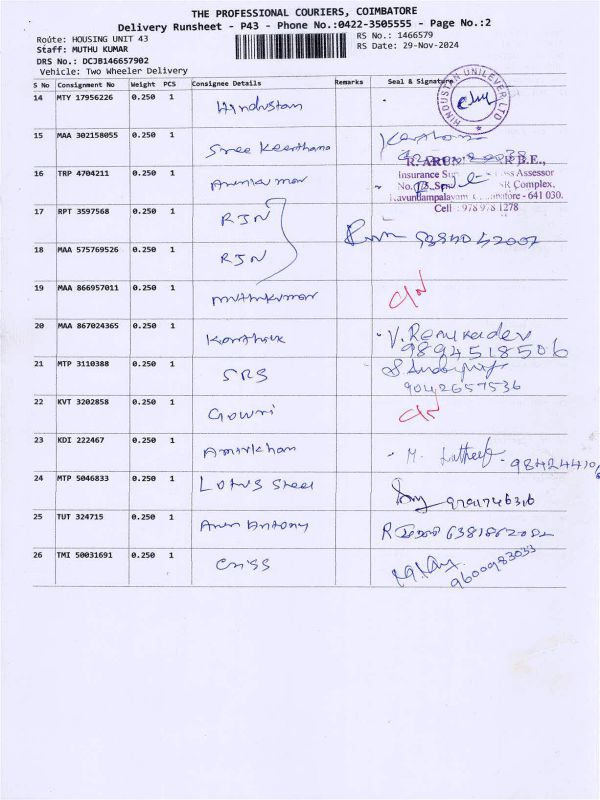 THE PROFESSIONAL COURIERS, COIMBATORE
Delivery Runsheet - P43 - Phone No.:0422-3505555 - Page No.:2
Route: HOUSING UNIT 43 RS No.: 1466579
Staff: MUTHU KUMAR RS Date: 29-Nov-2024
DRS No.: DCJB146657902
Vehicle: Two Wheeler Delivery
S No Consignment No Weight PCS Consignee Details Remarks Seal & Signature
14 MTY 17956226 0.250 1 Hindustan
HINDUSTAN UNILEVER LTD
15 MAA 302158055 0.250 1 Sree Keerthana
16 TRP 4704211 0.250 1 Arunkumar
Insurance Assessor
Complex,
- 641 030.
Cell : 978 978 1278
17 RPT 3597568 0.250 1 RJN
18 MAA 575769526 0.250 1 RJN
19 MAA 866957011 0.250 1 Muthukumar
20 MAA 867024365 0.250 1 Karthik V. Renukadev
9894518506
21 MTP 3110388 0.250 1 SRS
9042657536
22 KVT 3202858 0.250 1 Gowri
23 KDI 222467 0.250 1 Amirkhan M. Latheef
24 MTP 5046833 0.250 1 Lotus Steel
25 TUT 324715 0.250 1 Arun Antony
26 TMI 50031691 0.250 1 Criss
9600983033